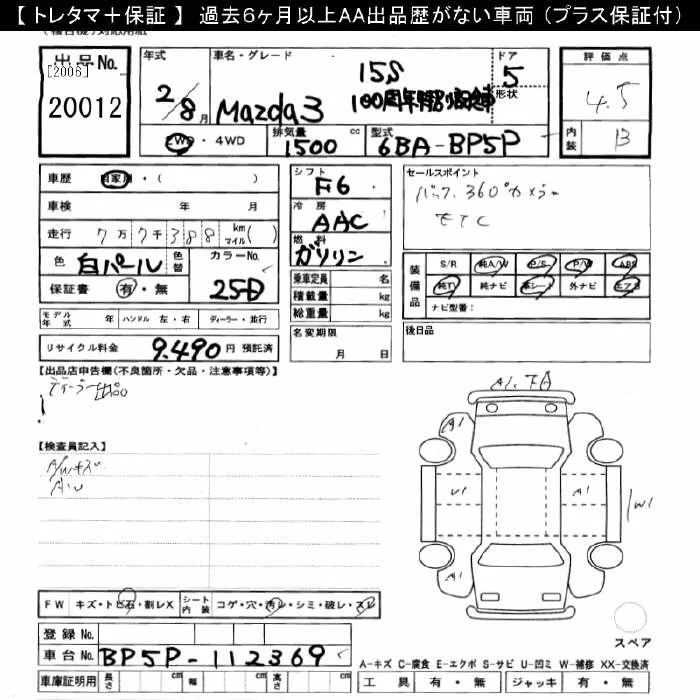 【 トレタマ＋保証 】 過去6ヶ月以上AA出品歴がない車両 (プラス保証付)
出 品 No.
[2006]
20012
年式 車名・グレード ドア 形状
2/8月 Mazda3 15S 5
100周年特別記念車
評 価 点
4.5
内装 B
2WD ・ 4WD 排気量 1500 cc 型式 6BA-BP5P
車歴 自家用 ・ ( )
車検 年 月
走行 7万7千388 km マイル ( )
色 白パール 色替 カラーNo. 25D
保証書 有・無
モデル年式 年 ハンドル 左・右 ディーラー・並行
リサイクル料金 9.490 円 預託済
シフト F6
冷房 AAC
燃料 ガソリン
乗車定員 名
積載量 kg
総重量 kg
名変期限
月 日
セールスポイント
バック、360°カメラ
ETC
装備品 S/R 純A/W P/S P/W ABS
純TV 純ナビ 革シート 外ナビ エアB
ナビ型番：
後日品
【出品店申告欄(不良箇所・欠品・注意事項等)】
【検査員記入】
A/Wキズ
AU
A1.
A1
U1
A1
W1
A1
スペア
FW キズ・トビ石・割レX シート内装 コゲ・穴・汚レ・シミ・破レ・スレ
登録 No.
車台 No. BP5P-112369
車庫証明用 長さ cm 幅 cm 高さ cm
A-キズ C-腐食 E-エクボ S-サビ U-凹ミ W-補修 XX-交換済
工 具 有 ・ 無 ジャッキ 有 ・ 無